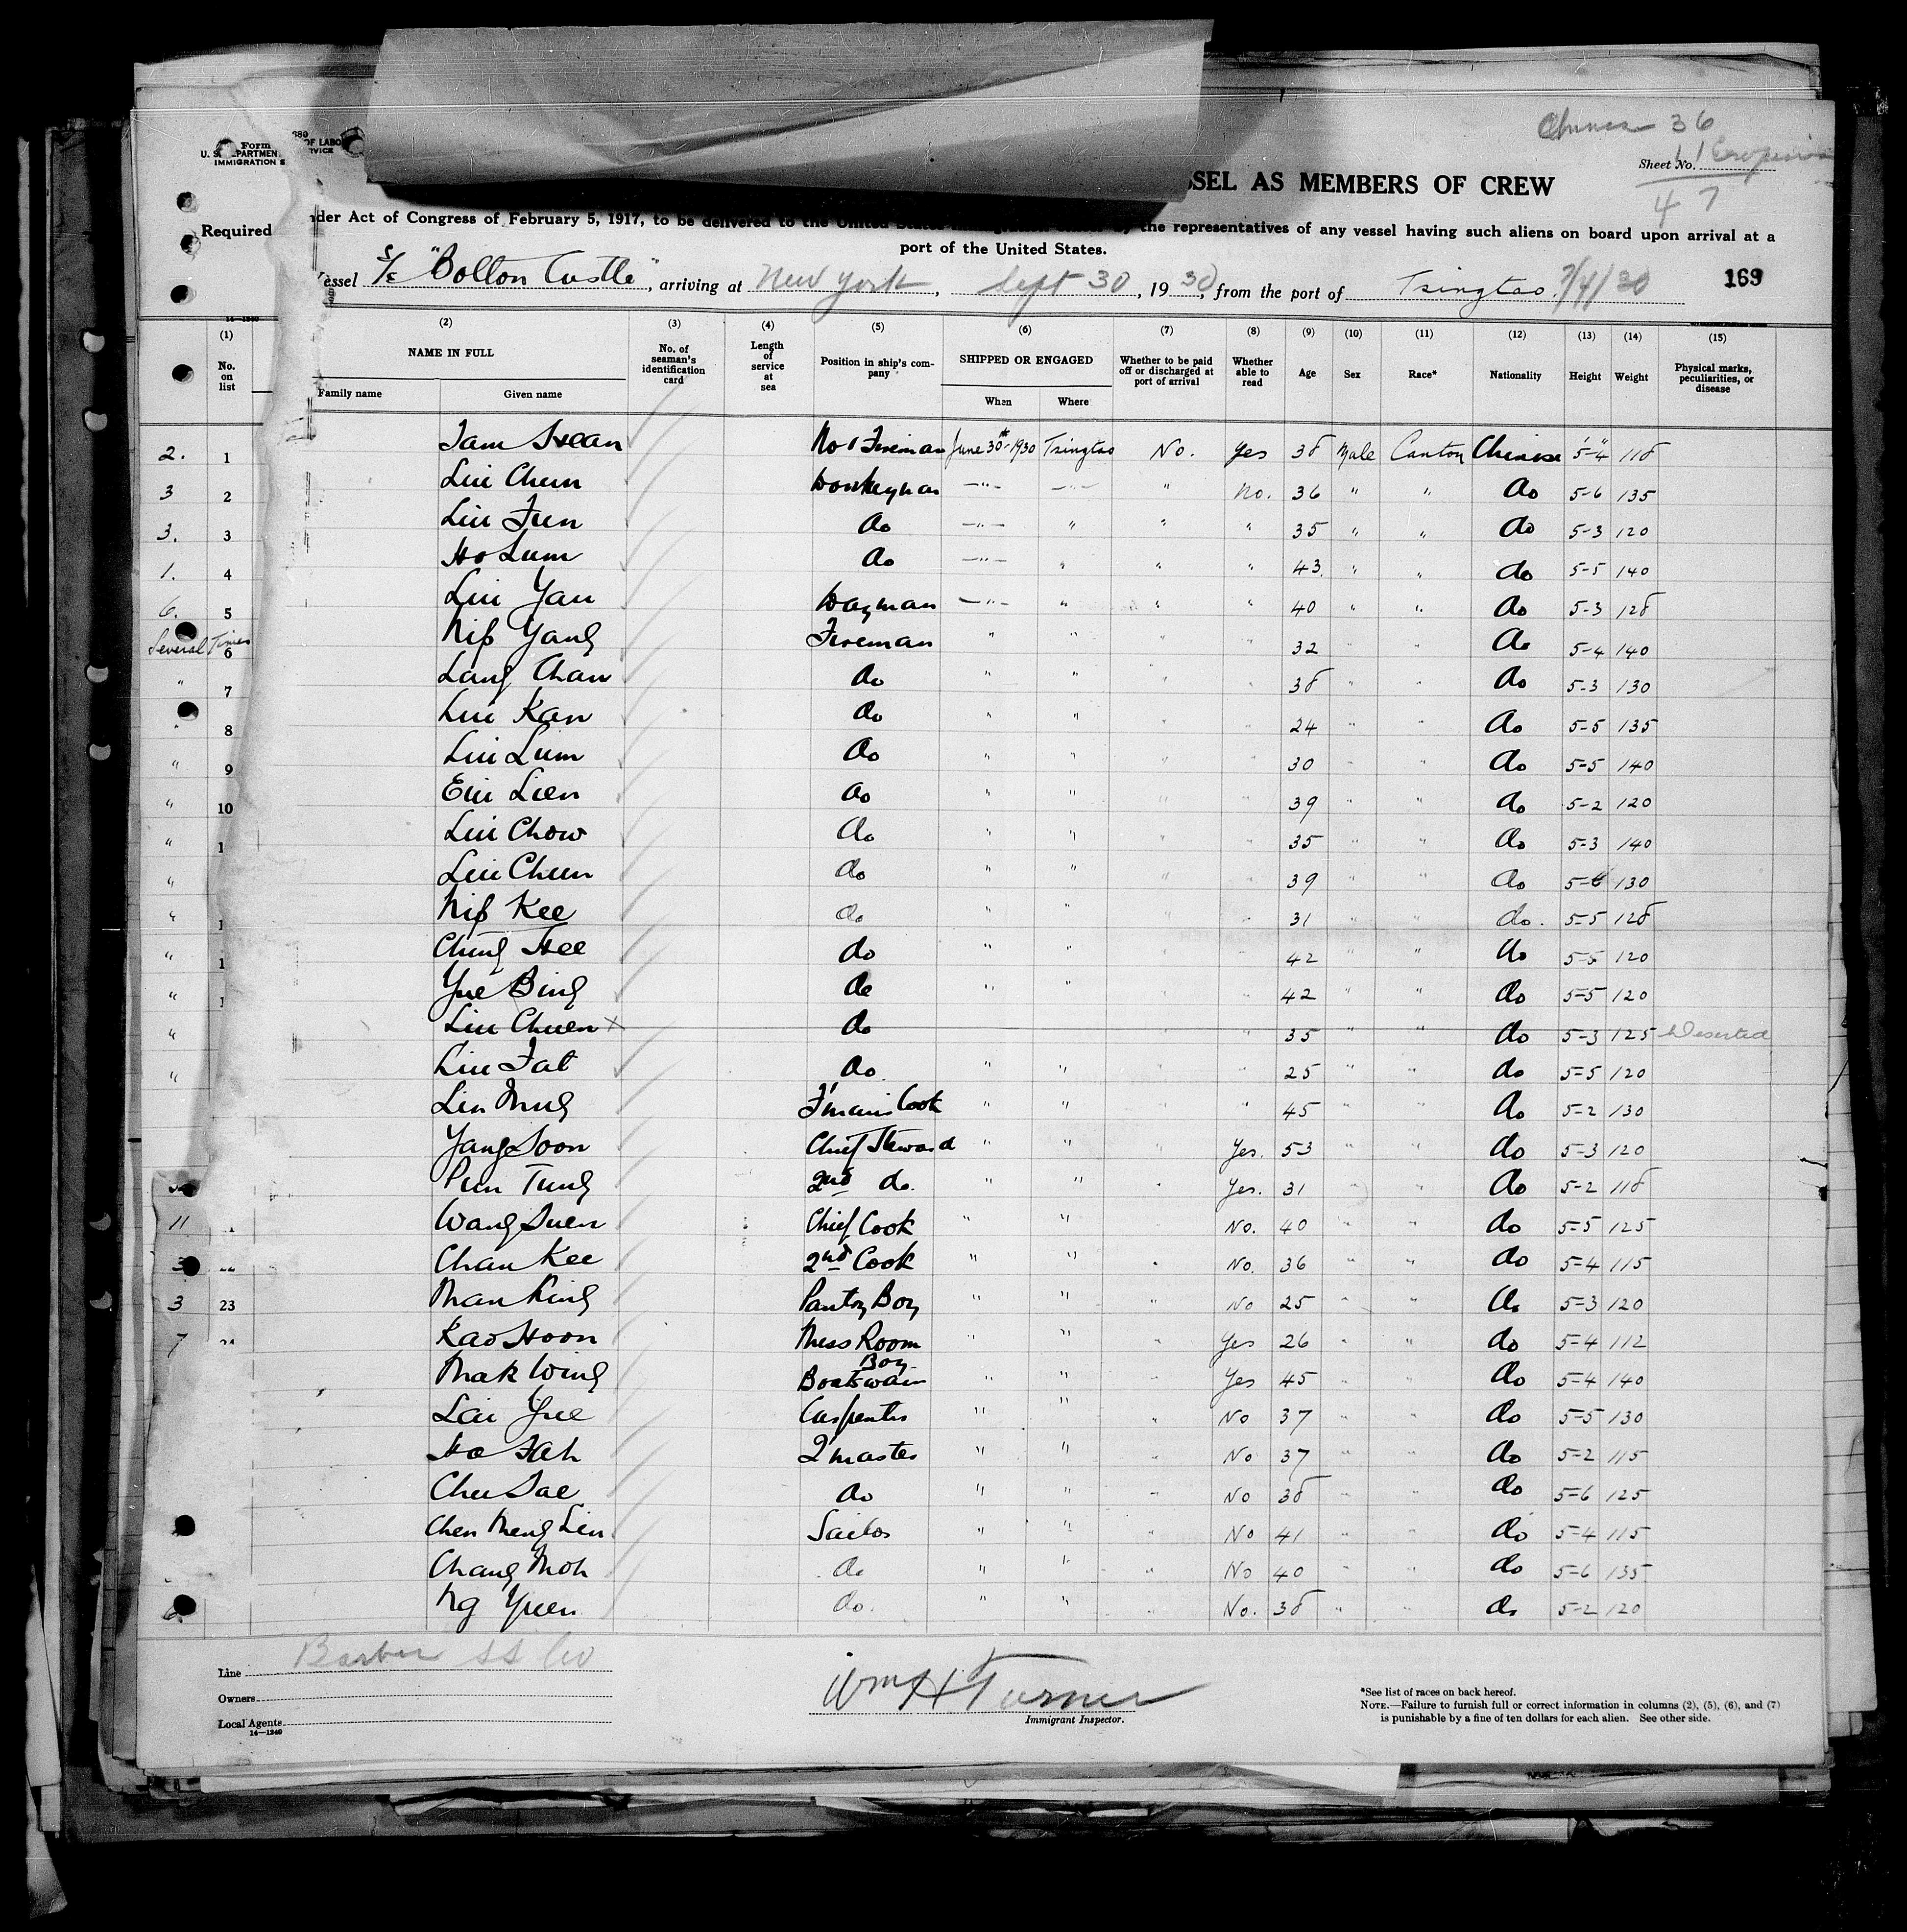 Chinese 36
Form 680
U. S. DEPARTMEN OF LABO
IMMIGRATION S RVICE
Sheet No. 11
47
SSEL AS MEMBERS OF CREW
Required nder Act of Congress of February 5, 1917, to be delivered to the United States by the representatives of any vessel having such aliens on board upon arrival at a
port of the United States.
Vessel S/S "Bolton Castle", arriving at New York, Sept 30, 1930, from the port of Tsingtao. 7/4/30 169
14—1240
(1) (2) (3) (4) (5) (6) (7) (8) (9) (10) (11) (12) (13) (14) (15)
No. on list NAME IN FULL No. of seaman's identification card Length of service at sea Position in ship's company SHIPPED OR ENGAGED Whether to be paid off or discharged at port of arrival Whether able to read Age Sex Race* Nationality Height Weight Physical marks, peculiarities, or disease
Family name Given name When Where
2. 1 Tam Swan No 1 Fireman June 30th-1930 Tsingtao No. Yes 38 Male Canton Chinese 5'-4" 118
3 2 Liu Chun Donkeyman —"— —"— " No. 36 " " do 5-6 135
3. 3 Liu Fun do —"— " " " 35 " " do 5-3 120
1. 4 Ho Lum do —"— " " " 43. " " do 5-5 140
6. 5 Liu Yau —"— " " " 40 " " do 5-3 128
Several Times 6 Nip Yang Fireman " " " 32 " " do 5-4 140
" 7 Lang Chan do " " " 38 " " do 5-3 130
" 8 Liu Kan do " " " 24 " " do 5-5 135
" 9 Liu Lum do " " " 30 " " do 5-5 140
" 10 Eiu Lien do " " " 39 " " do 5-2 120
" 1 Liu Chow do " " " 35 " " do 5-3 140
" Liu Chun do " " " 39 " " do 5-6 130
" 1 Nip Kee do " " " 31 " " do. 5-5 128
" 1 Chung Hee do " " " 42 " " do 5-5 120
" 1 Yue Bing do " " " 42 " " do 5-5 120
" Liu Chuen x do " 35 " " do 5-3 125 Deserted
" Liu Fat do. " " " " 25 " " do 5-5 120
Liu Mug F'man's Cook " " " " 45 " " do 5-2 130
Yang Soon Chief Steward " " Yes. 53 " " do 5-3 120
Pun Tung 2nd do. " " " Yes. 31 " " do 5-2 118
11 Wang Suen Chief Cook " " No. 40 " " do 5-5 125
3 Chan Kee 2nd Cook " " " No. 36 " " do 5-4 115
3 23 Man King Pantry Boy " " " No 25 " " do 5-3 120
7 Kao Hoon Mess Room Boy " " " Yes 26 " " do 5-4 112
Mak Wing Boatswain " " " Yes 45 " " do 5-4 140
Lai Yue Carpenter " " " No 37 " " do 5-5 130
Ho Fah Q'master " " " No 37 " " do 5-2 115
Chu Sae do " " " No 38 " " do 5-6 125
Chen Meng Lin Sailor " " " No 41 " " do 5-4 115
Chang Moh do " " " No 40 " " do 5-6 135
6 Ng Yuen do. " " " No. 38 " " do 5-2 120
Line Barber SS Co
Owners
Local Agents
14—1240
Wm H Turner
Immigrant Inspector.
*See list of races on back hereof.
NOTE.—Failure to furnish full or correct information in columns (2), (5), (6), and (7)
is punishable by a fine of ten dollars for each alien. See other side.